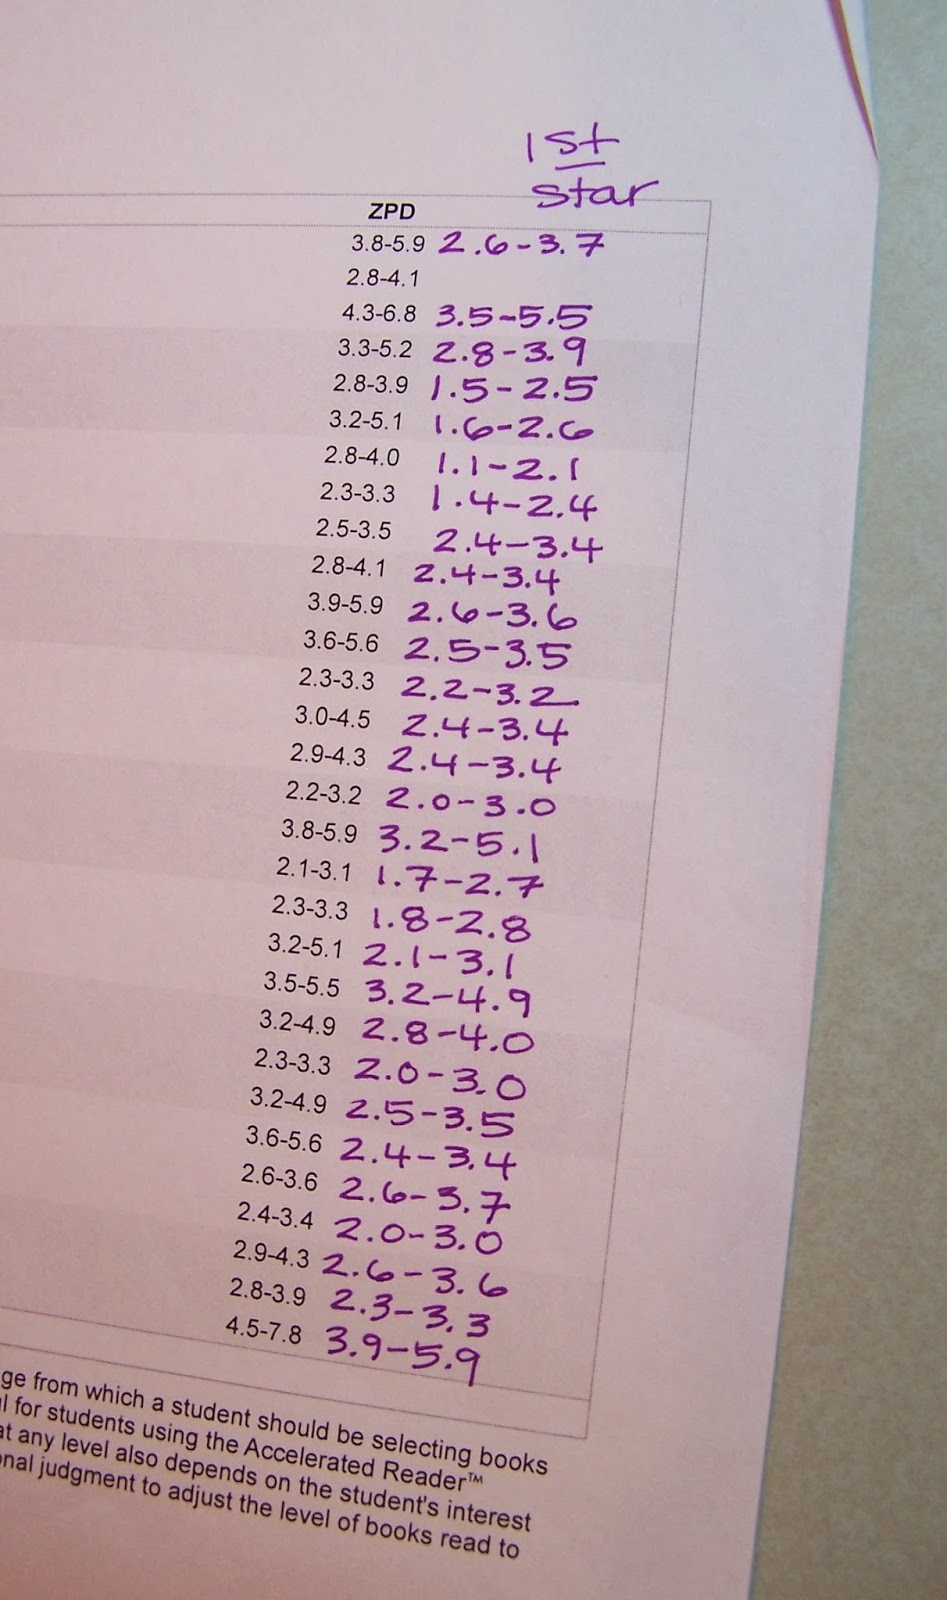 1st
star
ZPD
3.8-5.9 2.6-3.7
2.8-4.1
4.3-6.8 3.5-5.5
3.3-5.2 2.8-3.9
2.8-3.9 1.5-2.5
3.2-5.1 1.6-2.6
2.8-4.0 1.1-2.1
2.3-3.3 1.4-2.4
2.5-3.5 2.4-3.4
2.8-4.1 2.4-3.4
3.9-5.9 2.6-3.6
3.6-5.6 2.5-3.5
2.3-3.3 2.2-3.2
3.0-4.5 2.4-3.4
2.9-4.3 2.4-3.4
2.2-3.2 2.0-3.0
3.8-5.9 3.2-5.1
2.1-3.1 1.7-2.7
2.3-3.3 1.8-2.8
3.2-5.1 2.1-3.1
3.5-5.5 3.2-4.9
3.2-4.9 2.8-4.0
2.3-3.3 2.0-3.0
3.2-4.9 2.5-3.5
3.6-5.6 2.4-3.4
2.6-3.6 2.6-3.7
2.4-3.4 2.0-3.0
2.9-4.3 2.6-3.6
2.8-3.9 2.3-3.3
4.5-7.8 3.9-5.9
from which a student should be selecting books
for students using the Accelerated Reader™
at any level also depends on the student's interest
judgment to adjust the level of books read to